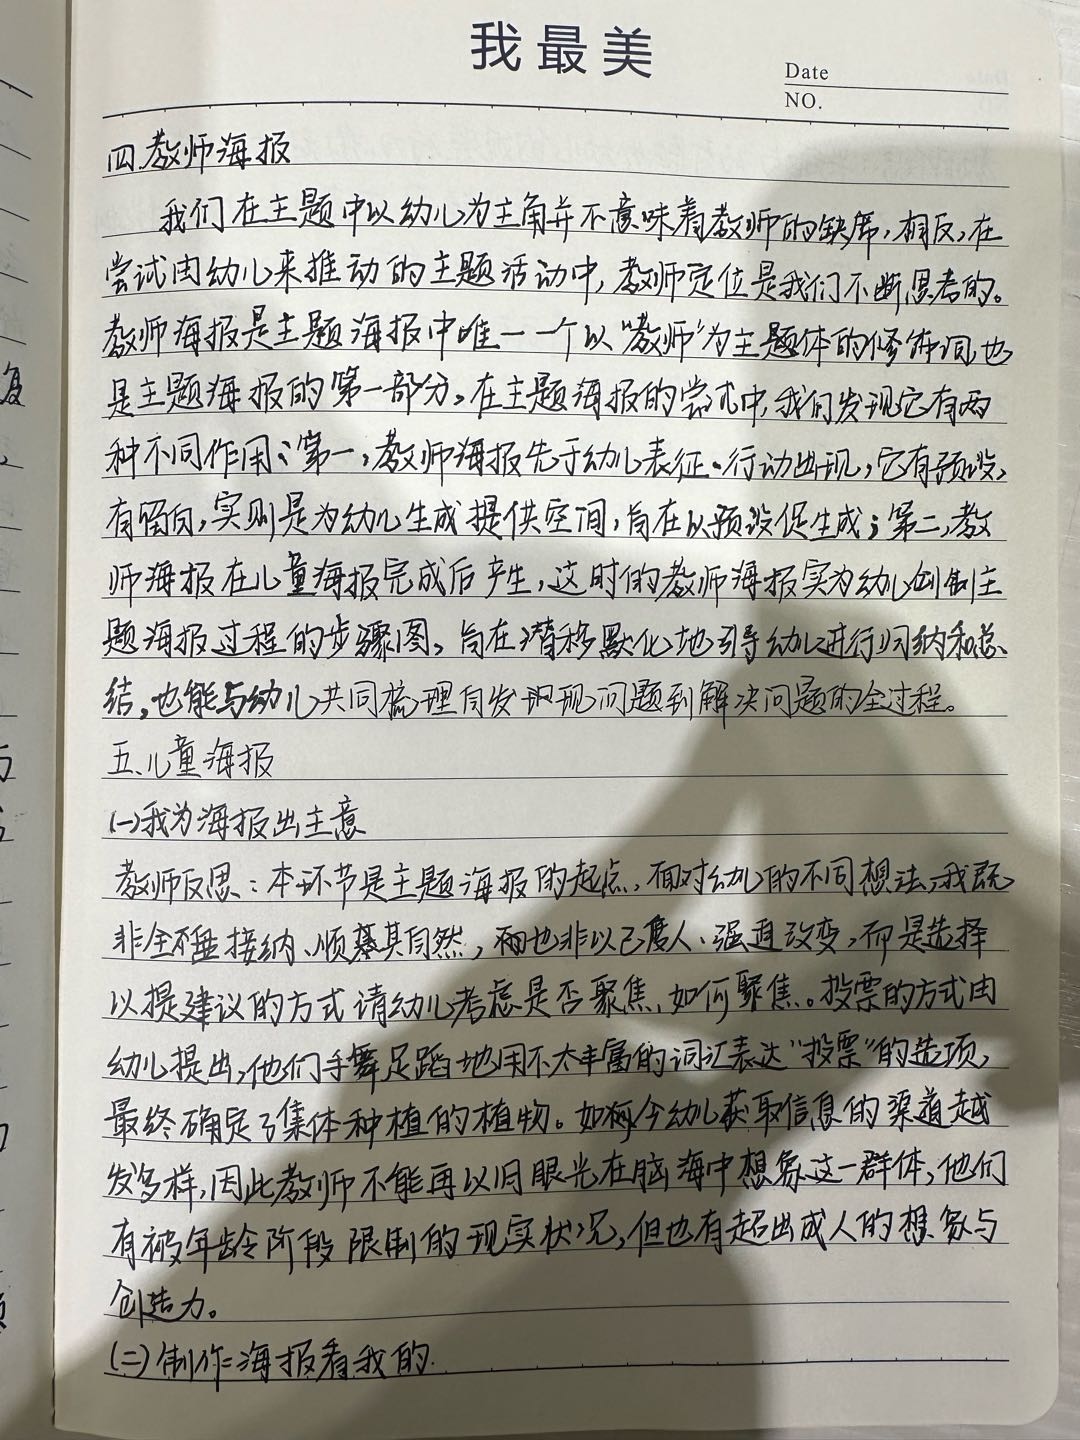 我最美
Date
NO.
四.教师海报
我们在主题中以幼儿为主角并不意味着教师的缺席,相反,在
尝试由幼儿来推动的主题活动中,教师定位是我们不断思考的。
教师海报是主题海报中唯一一个以“教师”为主题体的修饰词也
是主题海报的第一部分。在主题海报的尝试中,我们发现它有两
种不同作用:第一,教师海报先于幼儿表征、行动出现,它有预设,
有留白,实则是为幼儿生成提供空间,旨在以预设促生成;第二,教
师海报在儿童海报完成后产生,这时的教师海报实为幼儿创制主
题海报过程的步骤图,旨在潜移默化地引导幼儿进行归纳和总
结,也能与幼儿共同梳理自发现问题到解决问题的全过程。
五.儿童海报
(一)我为海报出主意
教师反思:本环节是主题海报的起点,面对幼儿的不同想法,我既
非全盘接纳、顺其自然,也非以己度人、强迫改变,而是选择
以提建议的方式请幼儿考虑是否聚焦,如何聚焦。投票的方式由
幼儿提出,他们手舞足蹈地用不太丰富的词汇表达“投票”的选项,
最终确定了集体种植的植物。如今幼儿获取信息的渠道越
发多样,因此教师不能再以旧眼光在脑海中想象这一群体,他们
有被年龄阶段限制的现实状况,但也有超出成人的想象与
创造力。
(二)制作海报看我的